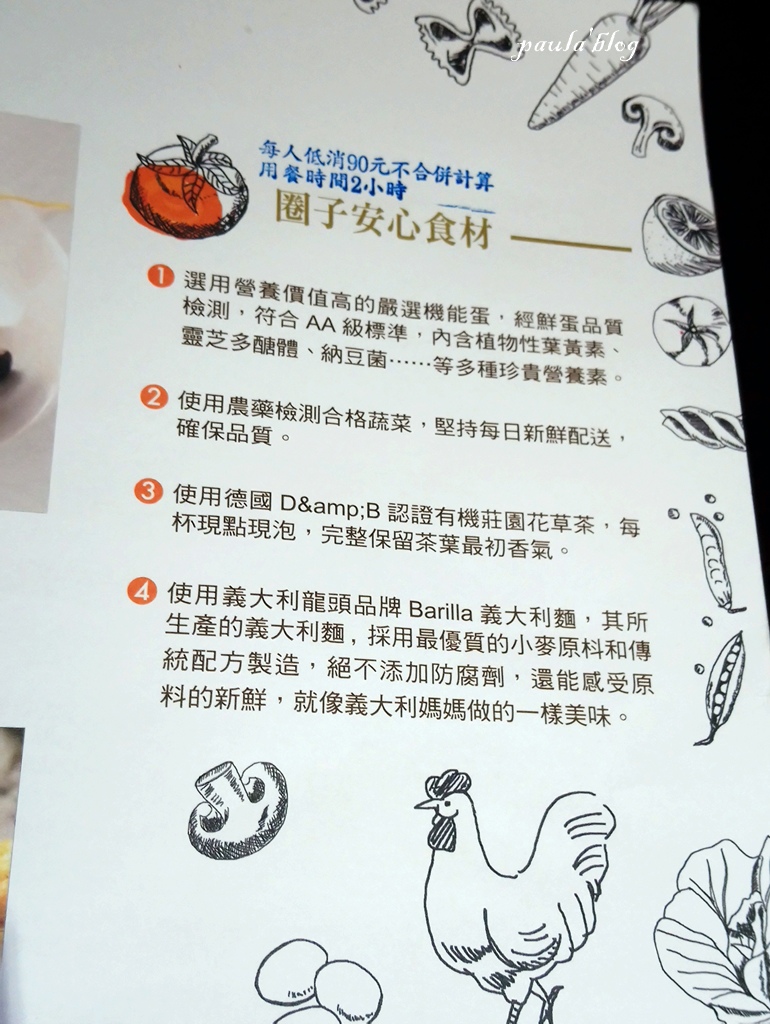 paula'blog
每人低消90元不合併計算
用餐時間2小時
圈子安心食材
1 選用營養價值高的嚴選機能蛋，經鮮蛋品質
檢測，符合 AA 級標準，內含植物性葉黃素、
靈芝多醣體、納豆菌……等多種珍貴營養素。
2 使用農藥檢測合格蔬菜，堅持每日新鮮配送，
確保品質。
3 使用德國 D&amp;B 認證有機莊園花草茶，每
杯現點現泡，完整保留茶葉最初香氣。
4 使用義大利龍頭品牌 Barilla 義大利麵，其所
生產的義大利麵，採用最優質的小麥原料和傳
統配方製造，絕不添加防腐劑，還能感受原
料的新鮮，就像義大利媽媽做的一樣美味。